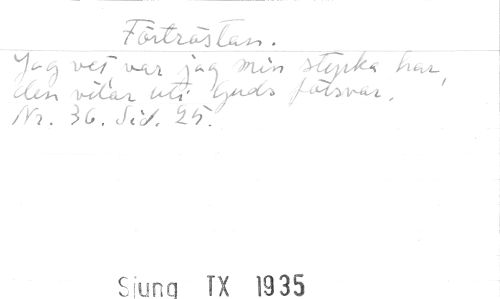 Förtröstan.
Jag vet, var jag min styrka har,
den vilar uti Guds försvar.
Nr. 36. Sid. 25.
Sjung TX 1935